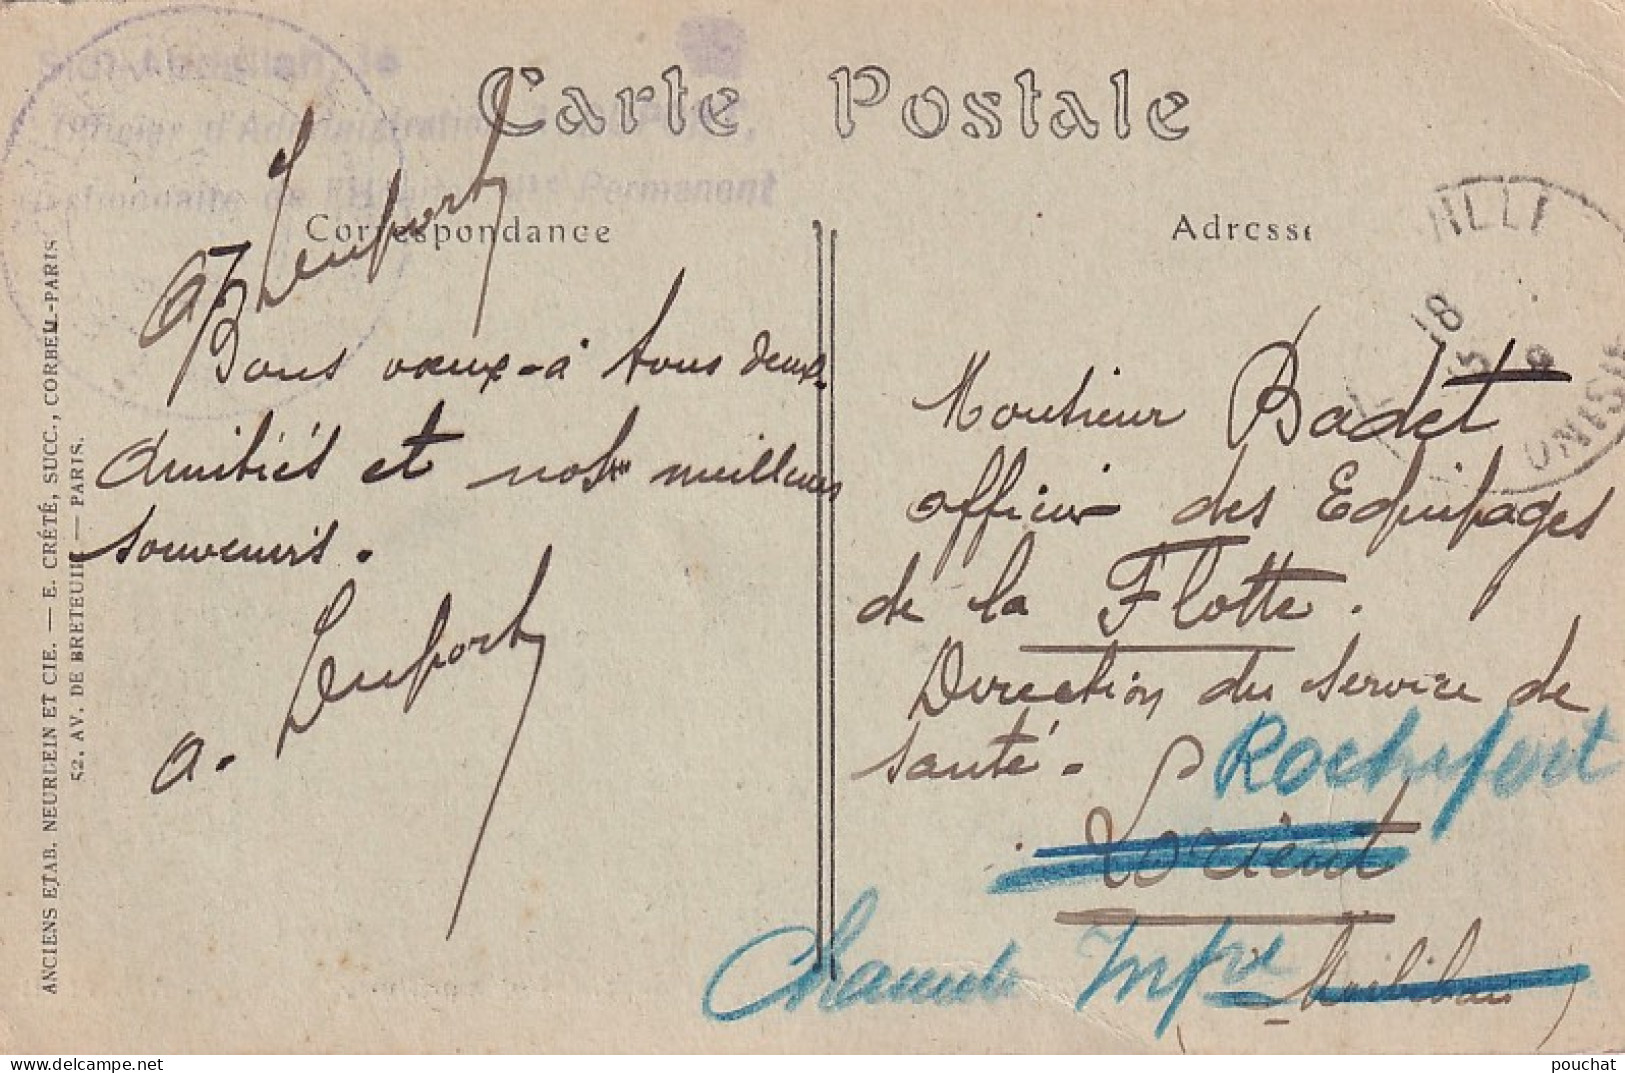 Carte Postale
Correspondance
Adresse
Bons vœux à tous deux
amitiés et nos meilleurs
souvenirs.
a.
Monsieur Badet
officier des Equipages
de la Flotte.
Direction du service de
santé.
Rochefort
Lorient
Charente Infre
Morbihan
ANCIENS ETAB. NEURDEIN ET CIE. — E. CRÉTÉ, SUCC., CORBEIL-PARIS
52. AV. DE BRETEUIL — PARIS.
Permanent
18
pouchat
www.delcampe.net